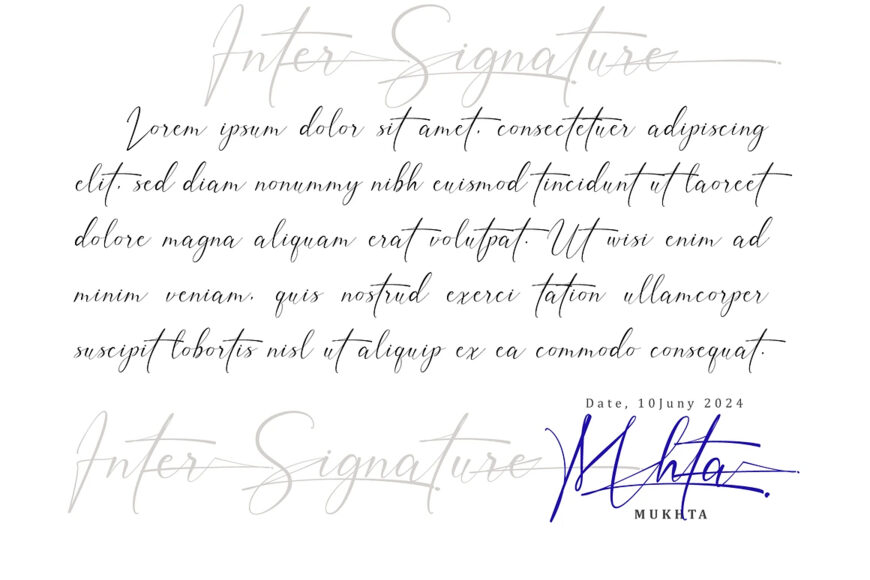 Inter Signature
Lorem ipsum dolor sit amet, consectetuer adipiscing
elit, sed diam nonummy nibh euismod tincidunt ut laoreet
dolore magna aliquam erat volutpat. Ut wisi enim ad
minim veniam, quis nostrud exerci tation ullamcorper
suscipit lobortis nisl ut aliquip ex ea commodo consequat.
Inter Signature
Date, 10Juny 2024
Mhta
MUKHTA